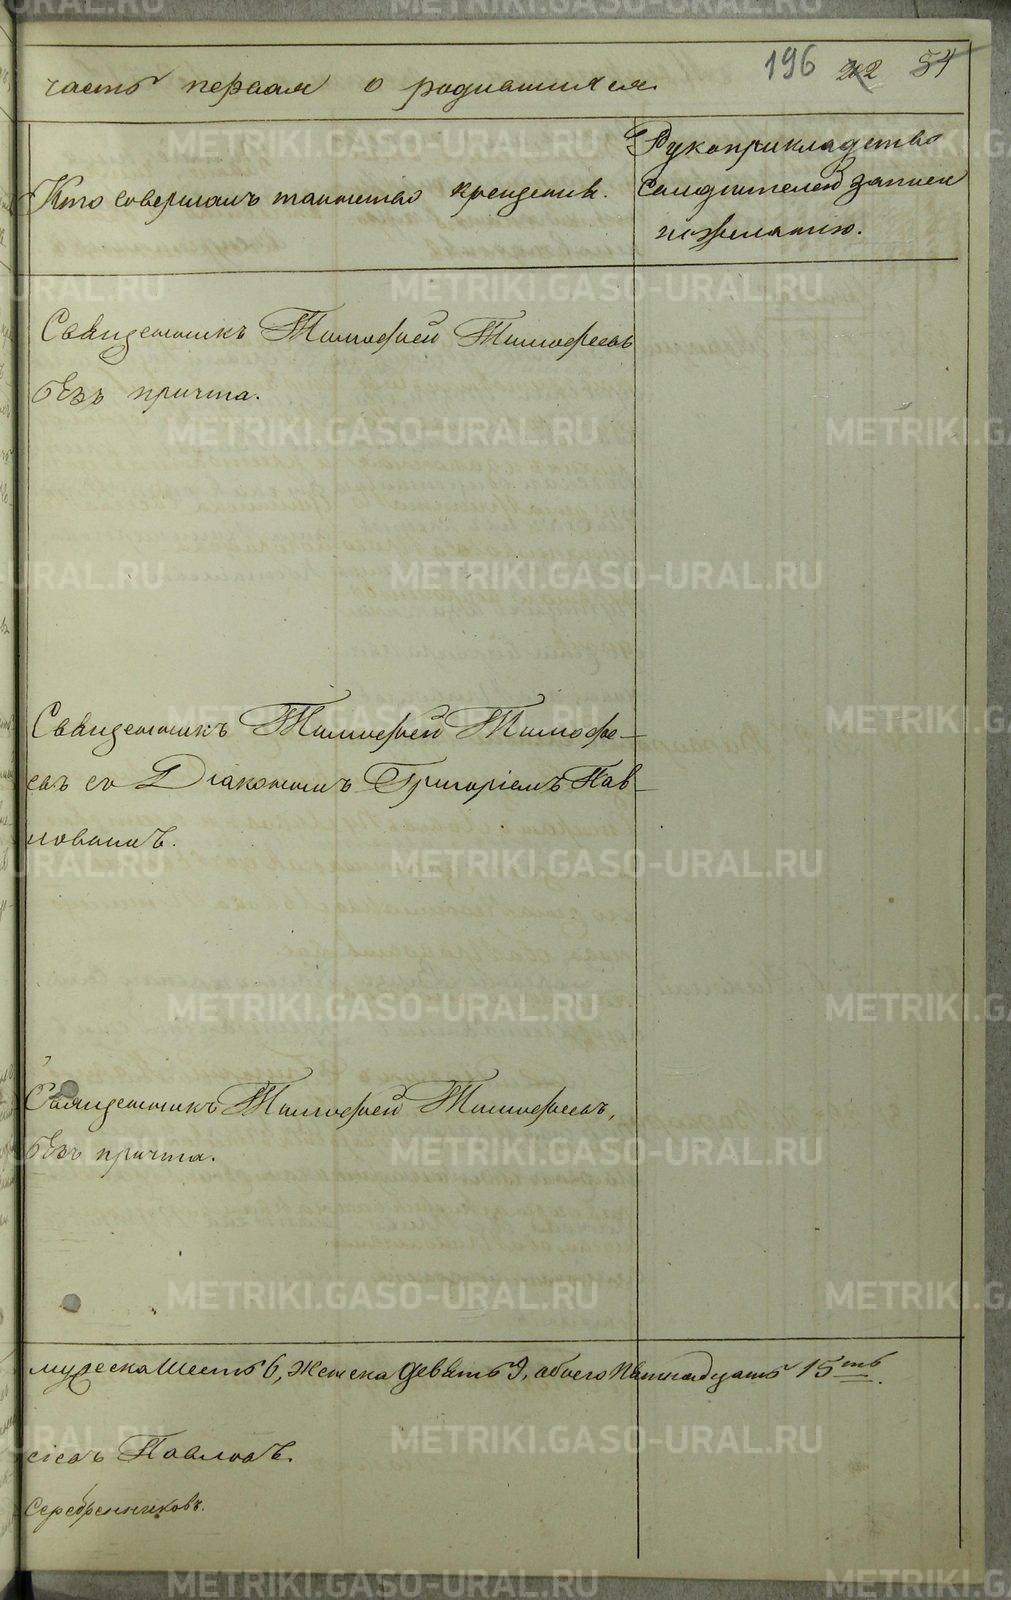 196 212 54
часть первая о родившихся.
Кто совершалъ таинство крещенія.
Рукоприкладство
свидѣтелей записи
по желанію.
Священникъ Тимофѣй Тимофѣевъ
безъ причта.
Священникъ Тимофѣй Тимофѣ-
евъ со Діакономъ Григоріемъ Пав-
ловымъ.
Священникъ Тимофѣй Тимофѣевъ,
безъ причта.
мужеска шесть 6, женска девять 9, обоего пятнадцать 15ть.
Павловъ.
Серебренниковъ.
METRIKI.GASO-URAL.RU